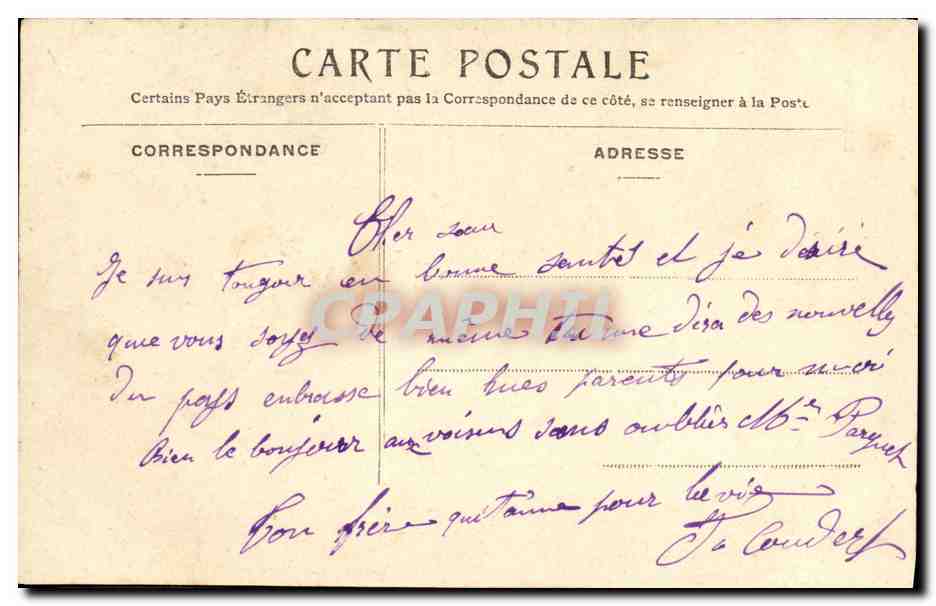 CARTE POSTALE
Certains Pays Étrangers n'acceptant pas la Correspondance de ce côté, se renseigner à la Poste
CORRESPONDANCE
ADRESSE
Cher sœur
Je suis tougour en bonne santés et je désiré
que vous soyez de même tu me dira des nouvelly
du pays enbrasse bien mes parents pour moi
Bien le bonjour aux voisins sans oublier Mr Parquet
Ton frère qui t'aime pour la vie
Coudert
CPAPHIL